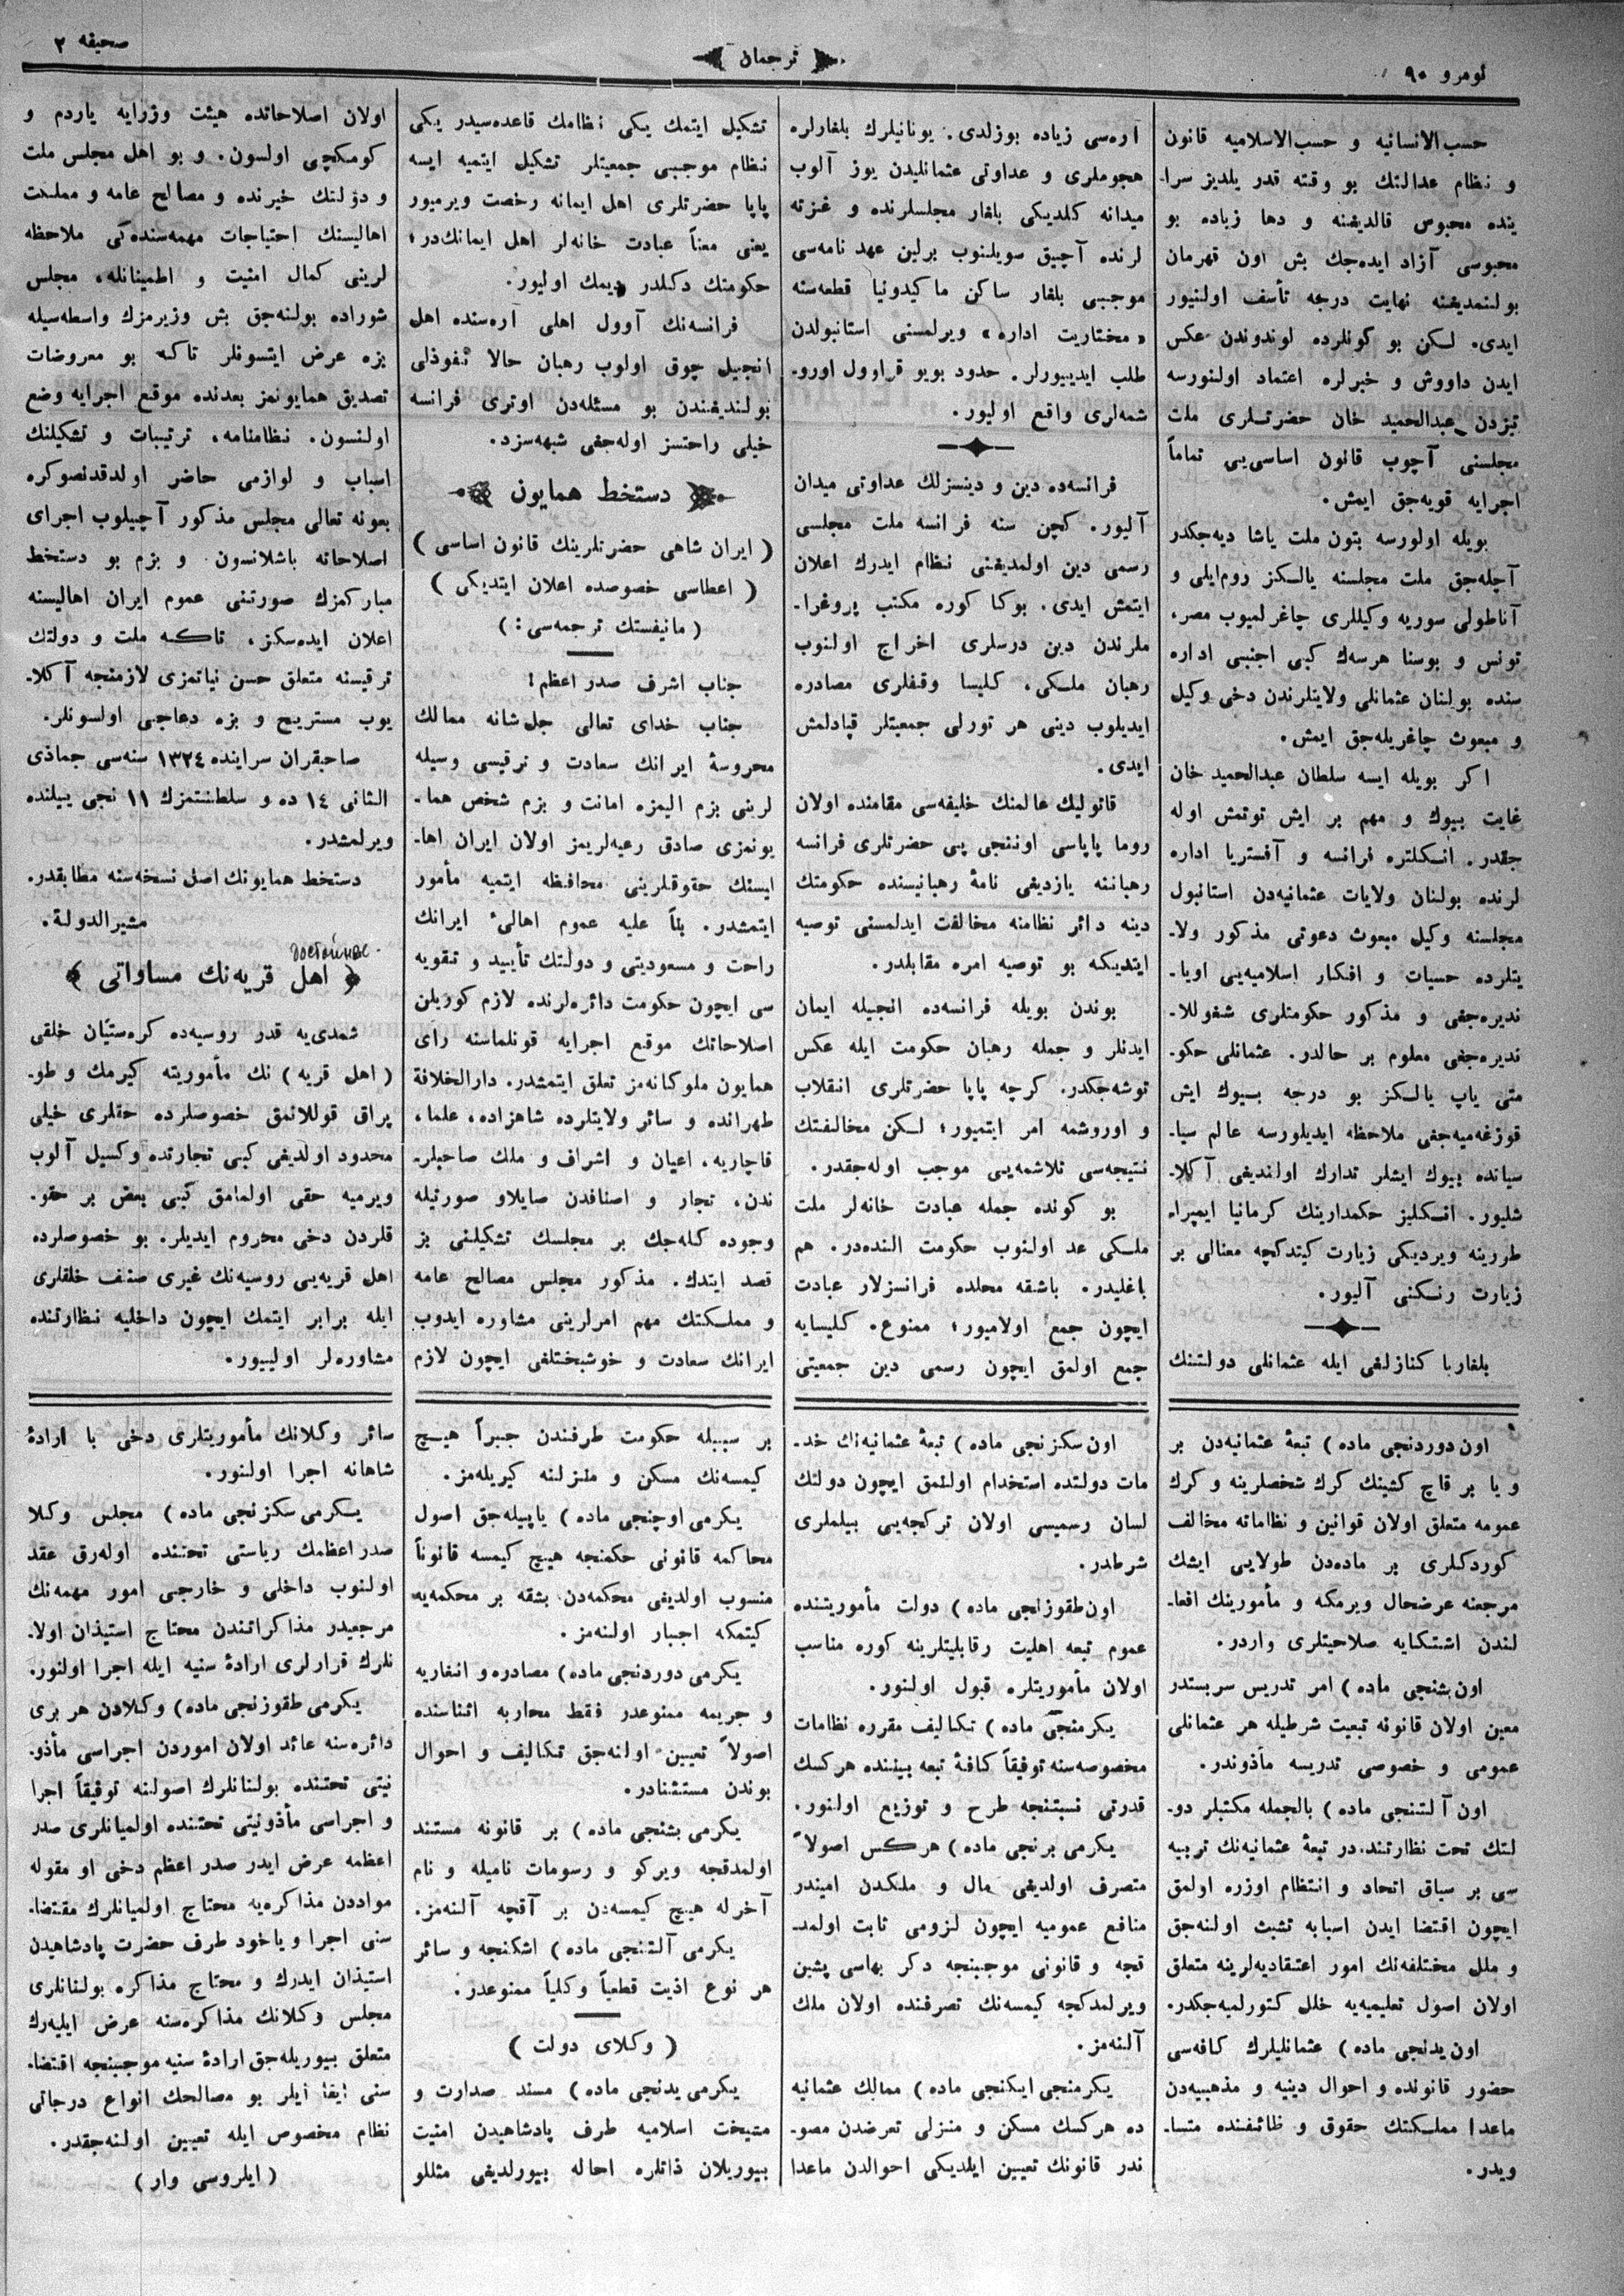 نومرو ٩٠
ترجمان
صحیفه ٢
حسب‌الانسانیه و حسب‌الاسلامیه قانون
و نظام عدالتك بو وقته قدر یلدیز سرا-
ینده محبوس قالدیغنه و دها زیاده بو
محبوسی آزاد ایده‌جك بش اون قهرمان
بولنمدیغنه نهایت درجه تأسف اولنیور
ایدی. لکن بو کونلرده لوندوندن عکس
ایدن داووش و خبرلره اعتماد اولنورسه
تیزدن عبدالحمید خان حضرتلری ملت
مجلسنی آچوب قانون اساسی‌یی تماماً
اجرایه قویه‌جق ایمش.
بویله اولورسه بتون ملت یاشا دیه‌جکدر
آچله‌جق ملت مجلسنه یالکز روم‌ایلی و
آناطولی سوریه وکیللری چاغرلمیوب مصر،
تونس و بوسنا هرسه‌ك کبی اجنبی اداره
سنده بولنان عثمانلی ولایتلرندن دخی وکیل
و مبعوث چاغریله‌جق ایمش.
اکر بویله ایسه سلطان عبدالحمید خان
غایت بیوك و مهم بر ایش توتمش اوله
جقدر. انکلتره فرانسه و آفستریا اداره
لرنده بولنان ولایات عثمانیه‌دن استانبول
مجلسنه وکیل مبعوث دعوتی مذکور ولا-
یتلرده حسیات و افکار اسلامیه‌یی اویا-
ندیره‌جغی و مذکور حکومتلری شغوللا-
ندیره‌جغی معلوم بر حالدر. عثمانلی حکو-
متی یاپ یالکز بو درجه بیوك ایش
قوزغه‌میه‌جغی ملاحظه ایدیلورسه عالم سیا-
سیانده بیوك ایشلر تدارك اولندیغی آکلا-
شلیور. انکلیز حکمدارینك کرمانیا ایمپرا-
طورینه ویردیکی زیارت کیتدکچه معنالی بر
زیارت رنکنی آلیور.
بلغاریا کنازلغی ایله عثمانلی دولتنك
آره‌سی زیاده بوزلدی. یونانیلرك بلغارلره
هجوملری و عداوتی عثمانلیدن یوز آلوب
میدانه کلدیکی بلغار مجلسلرنده و غزته
لرنده آچیق سویلنوب برلین عهد نامه‌سی
موجبی بلغار ساکن ماکیدونیا قطعه‌سنه
«مختاریت اداره» ویرلمسنی استانبولدن
طلب ایدییورلر. حدود بویو قراوول اورو-
شمه‌لری واقع اولیور.
فرانسه‌ده دین و دینسزلك عداوتی میدان
آلیور. کچن سنه فرانسه ملت مجلسی
رسمی دین اولمدیغنی نظام ایدرك اعلان
ایتمش ایدی. بوکا کوره مکتب پروغرا-
ملرندن دین درسلری اخراج اولنوب
رهبان ملکی، کلیسا وقفلری مصادره
ایدیلوب دینی هر تورلی جمعیتلر قپادلمش
ایدی.
قاتولیك عالمنك خلیفه‌سی مقامنده اولان
روما پاپاسی اوننجی پی حضرتلری فرانسه
رهباننه یازدیغی نامهٔ رهبانیسنده حکومتك
دینه دائر نظامنه مخالفت ایدلمسنی توصیه
ایتدیکنه بو توصیه امره مقابلدر.
بوندن بویله فرانسه‌ده انجیله ایمان
ایدنلر و جمله رهبان حکومت ایله عکس
توشه‌جکدر. کرچه پاپا حضرتلری انقلاب
و اوروشمه امر ایتمیور؛ لکن مخالفتك
نتیجه‌سی تلاشمه‌یی موجب اوله‌جقدر.
بو کونده جمله عبادت خانه‌لر ملت
ملکی عد اولنوب حکومت النده‌در. هم
باغلیدر. باشقه محلده فرانسزلار عبادت
ایچون جمع اولامیور؛ ممنوع. کلیسایه
جمع اولمق ایچون رسمی دین جمعیتی
تشکیل ایتمك یکی نظامك قاعده‌سیدر یکی
نظام موجبی جمعیتلر تشکیل ایتمیه ایسه
پاپا حضرتلری اهل ایمانه رخصت ویرمیور
یعنی معناً عبادت خانه‌لر اهل ایمانك‌در؛
حکومتك دکلدر دیمك اولیور.
فرانسه‌نك آوول اهلی آره‌سنده اهل
انجیل چوق اولوب رهبان حالا نفوذلی
بولندیغندن بو مسئله‌دن اوتری فرانسه
خیلی راحتسز اوله‌جغی شبهه‌سزد.
دستخط همایون
(ایران شاهی حضرتلرینك قانون اساسی)
(اعطاسی خصوصده اعلان ایتدیکی)
(مانیفستك ترجمه‌سی:)
جناب اشرف صدر اعظم!
جناب خدای تعالی جل شانه ممالك
محروسهٔ ایرانك سعادت و ترقیسی وسیله
لرینی بزم الیمزه امانت و بزم شخص هما-
یونمزی صادق رعیه‌لریمز اولان ایران اها-
ایسنك حقوقلرینی محافظه ایتمیه مأمور
ایتمشدر. بناً علیه عموم اهالیٔ ایرانك
راحت و مسعودیتی و دولتك تأیید و تقویه
سی ایچون حکومت دائره‌لرنده لازم کوریلن
اصلاحاتك موقع اجرایه قونلماسنه رای
همایون ملوکانه‌مز تعلق ایتمشدر. دارالخلافة
طهرانده و سائر ولایتلرده شاهزاده، علما،
قاجاریه، اعیان و اشراف و ملك صاحبلر-
ندن، تجار و اصنافدن صایلاو صورتیله
وجوده کله‌جك بر مجلسك تشکیلنی بز
قصد ایتدك. مذکور مجلس مصالح عامه
و مملکتك مهم امرلرینی مشاوره ایدوب
ایرانك سعادت و خوشبختلغی ایچون لازم
اولان اصلاحاتده هیئت وزرایه یاردم و
کومکچی اولسون. و بو اهل مجلس ملت
و دولتك خیرنده و مصالح عامه و مملکت
اهالیسنك احتیاجات مهمه‌سنده‌کی ملاحظه
لرینی کمال امنیت و اطمینانله، مجلس
شوراده بولنه‌جق بش وزیرمزك واسطه‌سیله
بزه عرض ایتسونلر تاکه بو معروضات
تصدیق همایونمز بعدنده موقع اجرایه وضع
اولنسون. نظامنامه، ترتیبات و تشکیلنك
اسباب و لوازمی حاضر اولدقدنصوکره
بعونه تعالی مجلس مذکور آچیلوب اجرای
اصلاحاته باشلانسون و بزم بو دستخط
مبارکمزك صورتنی عموم ایران اهالیسنه
اعلان ایده‌سکز، تاکه ملت و دولتك
ترقیسنه متعلق حسن نیاتمزی لازمنجه آکلا-
یوب مستریح و بزه دعاجی اولسونلر.
صاحبقران سراینده ١٣٢٤ سنه‌سی جماذی
الثانی ١٤ ده و سلطنتمزك ١١ نجی ییلنده
ویرلمشدر.
دستخط همایونك اصل نسخه‌سنه مطابقدر.
مشیرالدولة.
اهل قریه‌نك مساواتی
شمدی‌یه قدر روسیه‌ده کره‌ستیان خلقی
(اهل قریه) نك مأموریته کیرمك و طو-
پراق قوللانمق خصوصلرده حقلری خیلی
محدود اولدیغی کبی تجارتده وکسیل آلوب
ویرمیه حقی اولمامق کبی بعض بر حقو-
قلردن دخی محروم ایدیلر. بو خصوصلرده
اهل قریه‌یی روسیه‌نك غیری صنف خلقلری
ایله برابر ایتمك ایچون داخلیه نظارتنده
مشاوره‌لر اولییور.
اون دوردنجی ماده) تبعهٔ عثمانیه‌دن بر
و یا بر قاچ کشینك کرك شخصلرینه و کرك
عمومه متعلق اولان قوانین و نظاماته مخالف
کوردکلری بر ماده‌دن طولایی ایشك
مرجعنه عرضحال ویرمکه و مأمورینك افعا-
لندن اشتکایه صلاحیتلری واردر.
اون بشنجی ماده) امر تدریس سربستدر
معین اولان قانونه تبعیت شرطیله هر عثمانلی
عمومی و خصوصی تدریسه مأذوندر.
اون آلتنجی ماده) بالجمله مکتبلر دو-
لتك تحت نظارتنده‌در تبعهٔ عثمانیه‌نك تربیه
سی بر سیاق اتحاد و انتظام اوزره اولمق
ایچون اقتضا ایدن اسبابه تشبث اولنه‌جق
و ملل مختلفه‌نك امور اعتقادیه‌لرینه متعلق
اولان اصول تعلیمیه‌یه خلل کتورلمیه‌جکدر.
اون یدنجی ماده) عثمانلیلرك کافه‌سی
حضور قانونده و احوال دینیه و مذهبیه‌دن
ماعدا مملکتك حقوق و ظائفنده متسا-
ویدر.
اون سکزنجی ماده) تبعهٔ عثمانیه‌نك خد-
مات دولتده استخدام اولنمق ایچون دولتك
لسان رسمیسی اولان ترکجه‌یی بیلملری
شرطدر.
اون‌طقوزنجی ماده) دولت مأموریتنده
عموم تبعه اهلیت و قابلیتلرینه کوره مناسب
اولان مأموریتلره قبول اولنور.
یکرمنجی ماده) تکالیف مقرره نظامات
مخصوصه‌سنه توفیقاً کافهٔ تبعه بیننده هرکسك
قدرتی نسبتنجه طرح و توزیع اولنور.
یکرمی برنجی ماده) هرکس اصولاً
متصرف اولدیغی مال و ملکدن امیندر
منافع عمومیه ایچون لزومی ثابت اولمد-
قجه و قانونی موجبنجه دکر بهاسی پشین
ویرلمدکچه کیمسه‌نك تصرفنده اولان ملك
آلنه‌مز.
یکرمنجی ایکنجی ماده) ممالك عثمانیه
ده هرکسك مسکن و منزلی تعرضدن مصو-
ندر قانونك تعیین ایلدیکی احوالدن ماعدا
بر سببله حکومت طرفندن جبراً هیچ
کیمسه‌نك مسکن و منزلنه کیریله‌مز.
یکرمی اوچنجی ماده) یاپیله‌جق اصول
محاکمه قانونی حکمنجه هیچ کیمسه قانوناً
منسوب اولدیغی محکمه‌دن بشقه بر محکمه‌یه
کیتمکه اجبار اولنه‌مز.
یکرمی دوردنجی ماده) مصادره و انغاریه
و جریمه ممنوعدر فقط محاربه اثناسنده
اصولاً تعیین اولنه‌جق تکالیف و احوال
بوندن مستثنادر.
یکرمی بشنجی ماده) بر قانونه مستند
اولمدقجه ویرکو و رسومات نامیله و نام
آخرله هیچ کیمسه‌دن بر آقچه آلنه‌مز.
یکرمی آلتنجی ماده) اشکنجه و سائر
هر نوع اذیت قطعیاً وکلیاً ممنوعدر.
(وکلای دولت)
یکرمی یدنجی ماده) مسند صدارت و
مشیخت اسلامیه طرف پادشاهیدن امنیت
بیوریلان ذاتلره احاله بیورلدیغی مثللو
سائر وکلانك مأموریتلری دخی با ارادهٔ
شاهانه اجرا اولنور.
یکرمی سکزنجی ماده) مجلس وکلا
صدراعظمك ریاستی تحتنده اوله‌رق عقد
اولنوب داخلی و خارجی امور مهمه‌نك
مرجعیدر مذاکراتندن محتاج استیذان اولا-
نلرك قرارلری ارادهٔ سنیه ایله اجرا اولنور.
یکرمی طقوزنجی ماده) وکلادن هر بری
دائره‌سنه عائد اولان اموردن اجراسی مأذو-
نیتی تحتنده بولنانلرك اصولنه توفیقاً اجرا
و اجراسی مأذونیتی تحتنده اولمیانلری صدر
اعظمه عرض ایدر صدر اعظم دخی او مقوله
مواددن مذاکره‌یه محتاج اولمیانلرك مقتضا-
سنی اجرا و یاخود طرف حضرت پادشاهیدن
استیذان ایدرك و محتاج مذاکره بولنانلری
مجلس وکلانك مذاکره‌سنه عرض ایلیه‌رك
متعلق بیوریله‌جق ارادهٔ سنیه موجبنجه اقتضا-
سنی ایفا ایلر بو مصالحك انواع درجاتی
نظام مخصوص ایله تعیین اولنه‌جقدر.
(ایلروسی وار)